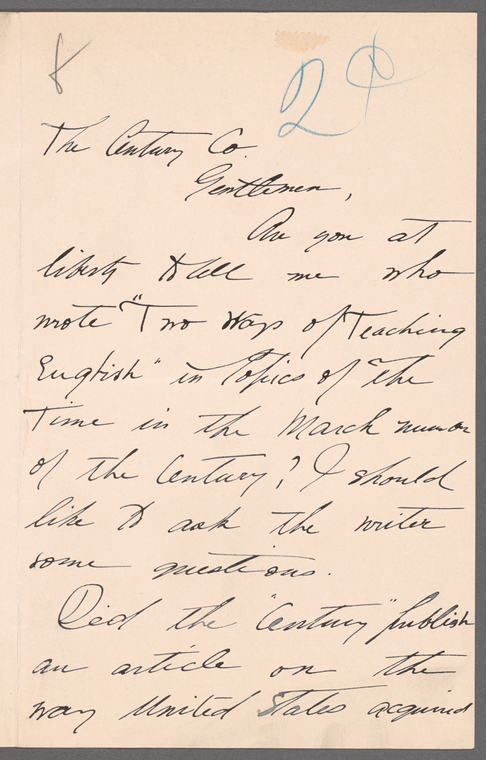 The Century Co.
Gentlemen,
Are you at
liberty to tell me who
wrote "Two Ways of Teaching
English" in Topics of the
Time in the March number
of the Century? I should
like to ask the writer
some questions.
Did the "Century" publish
an article on the
way United States acquired